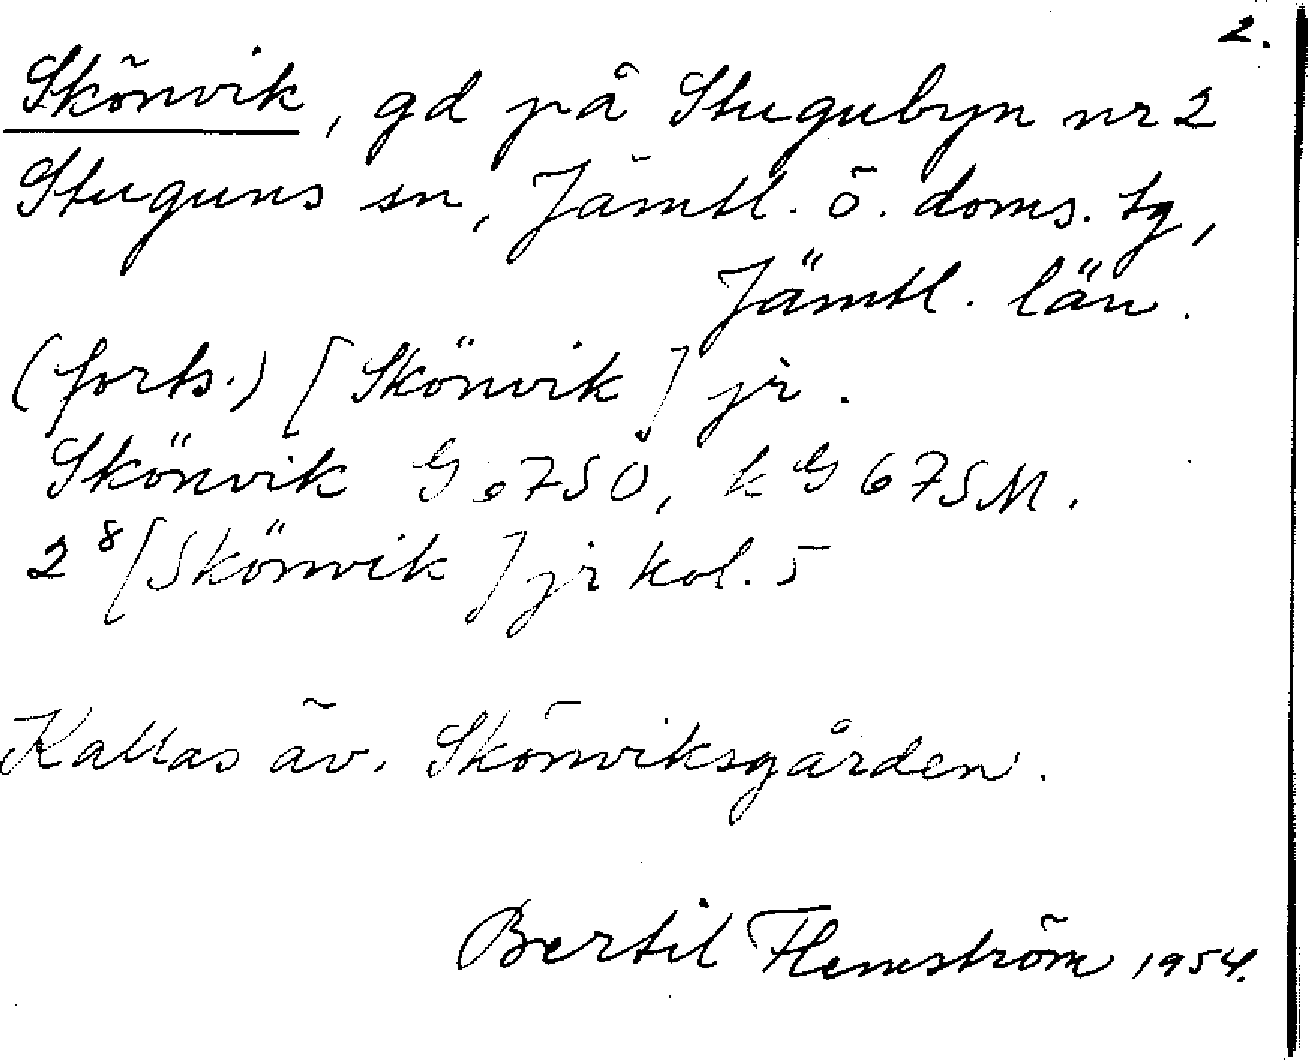 2.
Skönvik, gd på Stugubyn nr 2
Stuguns sn, Jämtl. ö. doms. tg,
Jämtl. län.
(forts.) [Skönvik] jr.
Skönvik G 67 SO, k G 67 SM.
2⁸ [Skönvik] jr kol. 5
Kallas äv. Skönviksgården.
Bertil Flemström 1954.